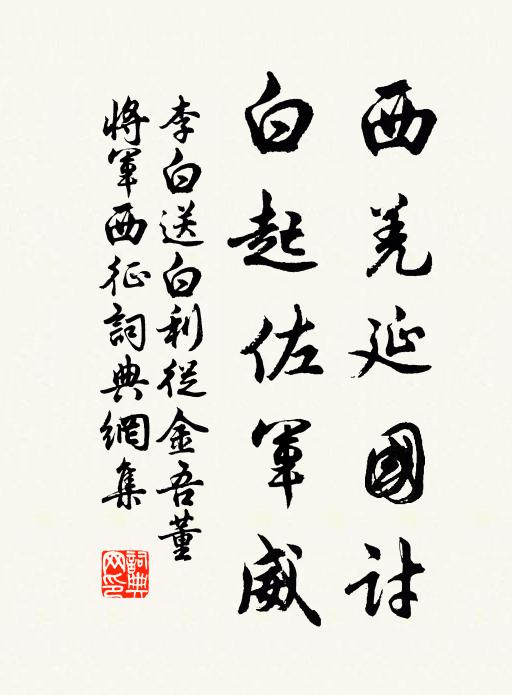 西羌延國討
白起佐軍威
李白送白利從金吾董
將軍西征詞典網集
詞典
网印